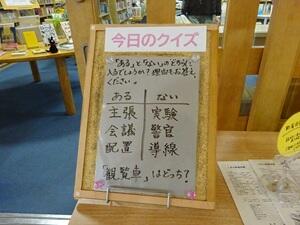 今日のクイズ
「ある」と「ない」のどちらに
入るでしょうか？理由もお答え
ください。
ある ない
主張 実験
会議 警官
配置 導線
「観覧車」はどっち？